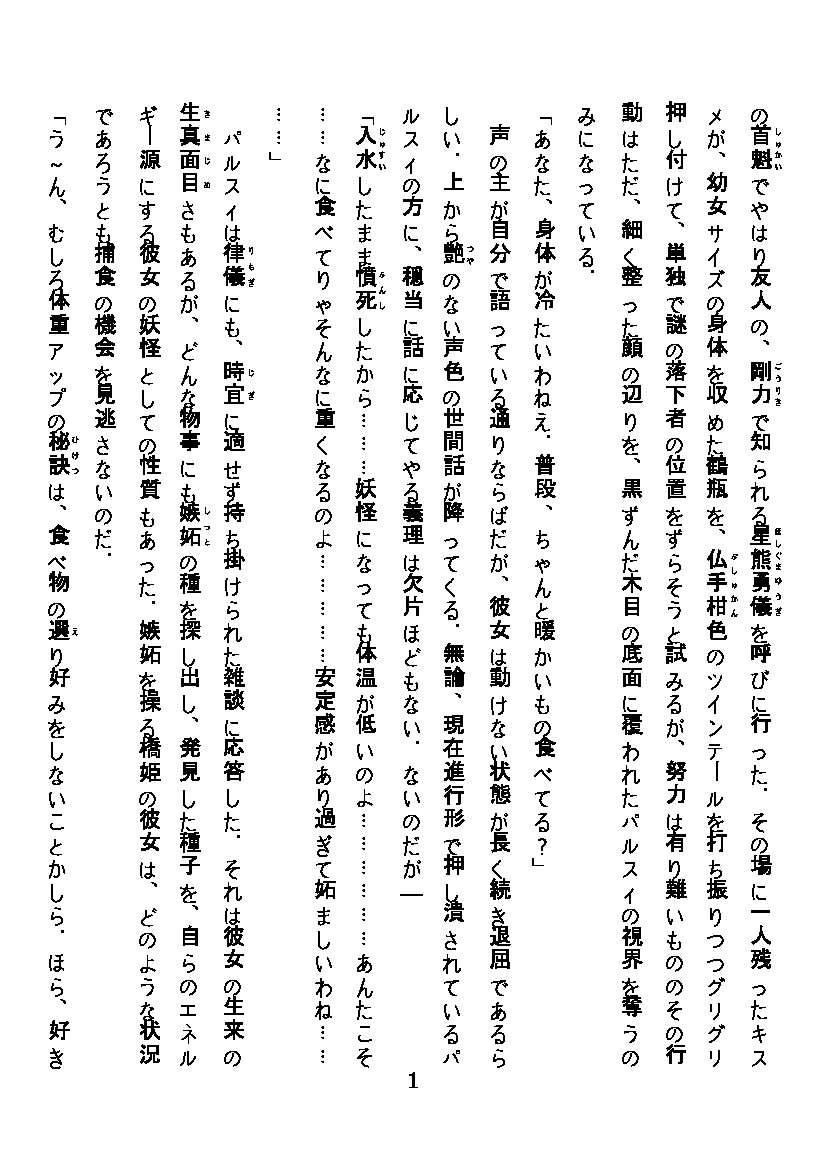 の首魁でやはり友人の、剛力で知られる星熊勇儀を呼びに行った．その場に一人残ったキス
メが、幼女サイズの身体を収めた鶴瓶を、仏手柑色のツインテールを打ち振りつつグリグリ
押し付けて、単独で謎の落下者の位置をずらそうと試みるが、努力は有り難いもののその行
動はただ、細く整った顔の辺りを、黒ずんだ木目の底面に覆われたパルスィの視界を奪うの
みになっている．
「あなた、身体が冷たいわねえ．普段、ちゃんと暖かいもの食べてる？」
声の主が自分で語っている通りならばだが、彼女は動けない状態が長く続き退屈であるら
しい．上から艶のない声色の世間話が降ってくる．無論、現在進行形で押し潰されているパ
ルスィの方に、穏当に話に応じてやる義理は欠片ほどもない．ないのだが―
「入水したまま憤死したから………妖怪になっても体温が低いのよ………………あんたこそ
……なに食べてりゃそんなに重くなるのよ……………安定感があり過ぎて妬ましいわね……
……」
パルスィは律儀にも、時宜に適せず持ち掛けられた雑談に応答した．それは彼女の生来の
生真面目さもあるが、どんな物事にも嫉妬の種を探し出し、発見した種子を、自らのエネル
ギー源にする彼女の妖怪としての性質もあった．嫉妬を操る橋姫の彼女は、どのような状況
であろうとも捕食の機会を見逃さないのだ．
「う～ん、むしろ体重アップの秘訣は、食べ物の選り好みをしないことかしら．ほら、好き
1